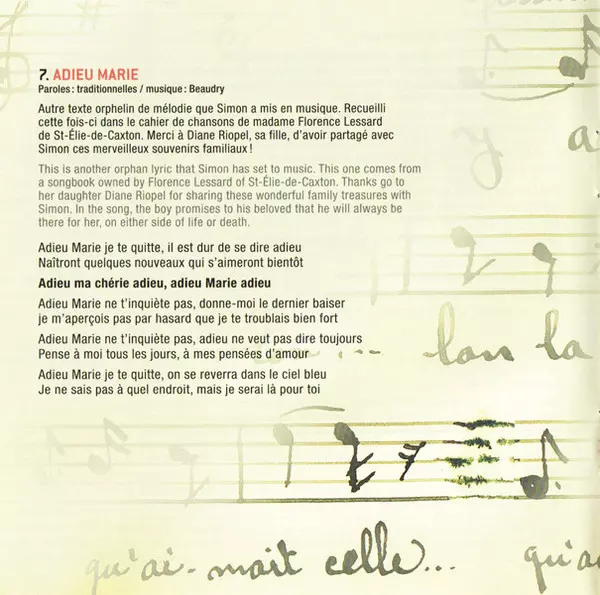 7. ADIEU MARIE
Paroles : traditionnelles / musique : Beaudry
Autre texte orphelin de mélodie que Simon a mis en musique. Recueilli
cette fois-ci dans le cahier de chansons de madame Florence Lessard
de St-Élie-de-Caxton. Merci à Diane Riopel, sa fille, d'avoir partagé avec
Simon ces merveilleux souvenirs familiaux !
This is another orphan lyric that Simon has set to music. This one comes from
a songbook owned by Florence Lessard of St-Élie-de-Caxton. Thanks go to
her daughter Diane Riopel for sharing these wonderful family treasures with
Simon. In the song, the boy promises to his beloved that he will always be
there for her, on either side of life or death.
Adieu Marie je te quitte, il est dur de se dire adieu
Naîtront quelques nouveaux qui s'aimeront bientôt
Adieu ma chérie adieu, adieu Marie adieu
Adieu Marie ne t'inquiète pas, donne-moi le dernier baiser
je m'aperçois pas par hasard que je te troublais bien fort
Adieu Marie ne t'inquiète pas, adieu ne veut pas dire toujours
Pense à moi tous les jours, à mes pensées d'amour
Adieu Marie je te quitte, on se reverra dans le ciel bleu
Je ne sais pas à quel endroit, mais je serai là pour toi
y a
lon la
qu'ai-mait celle... qu'a